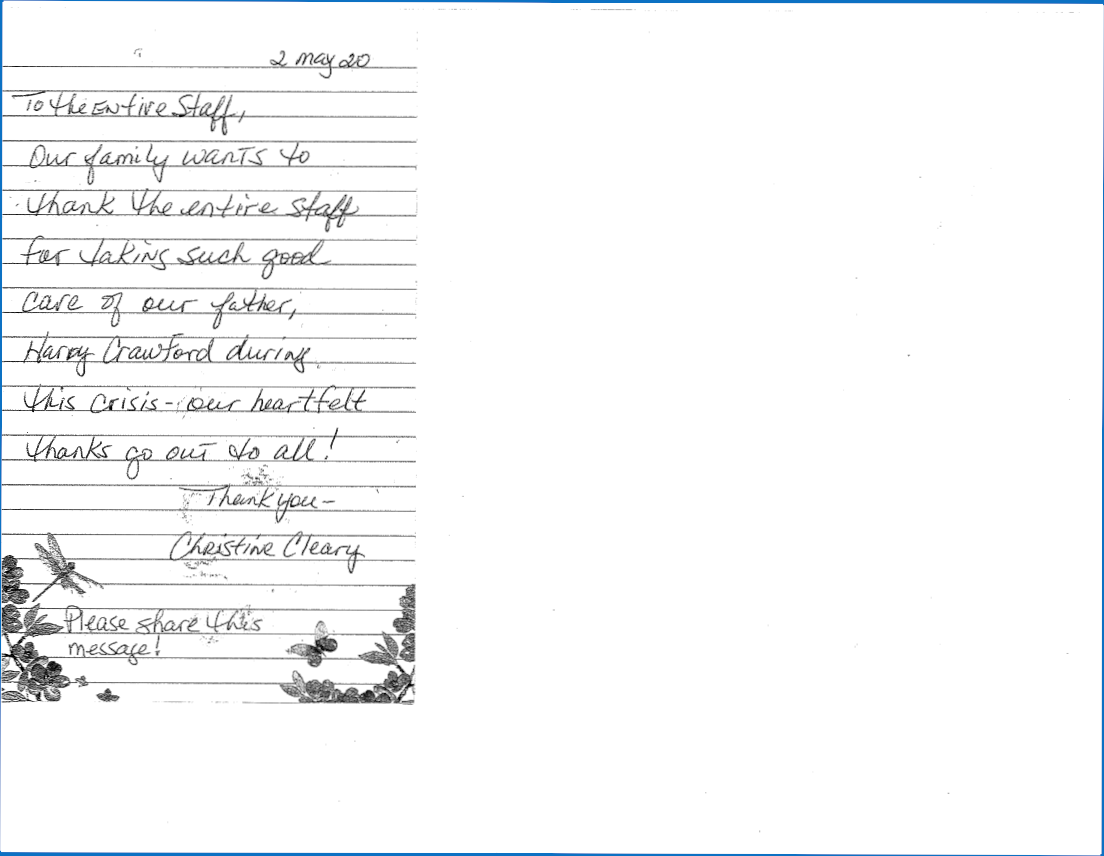 2 May 20
To the Entire Staff,
Our family wants to
thank the entire staff
for taking such good
care of our father,
Harry Crawford during
this crisis - our heartfelt
thanks go out to all!
Thank you -
Christine Cleary
Please share this
message!